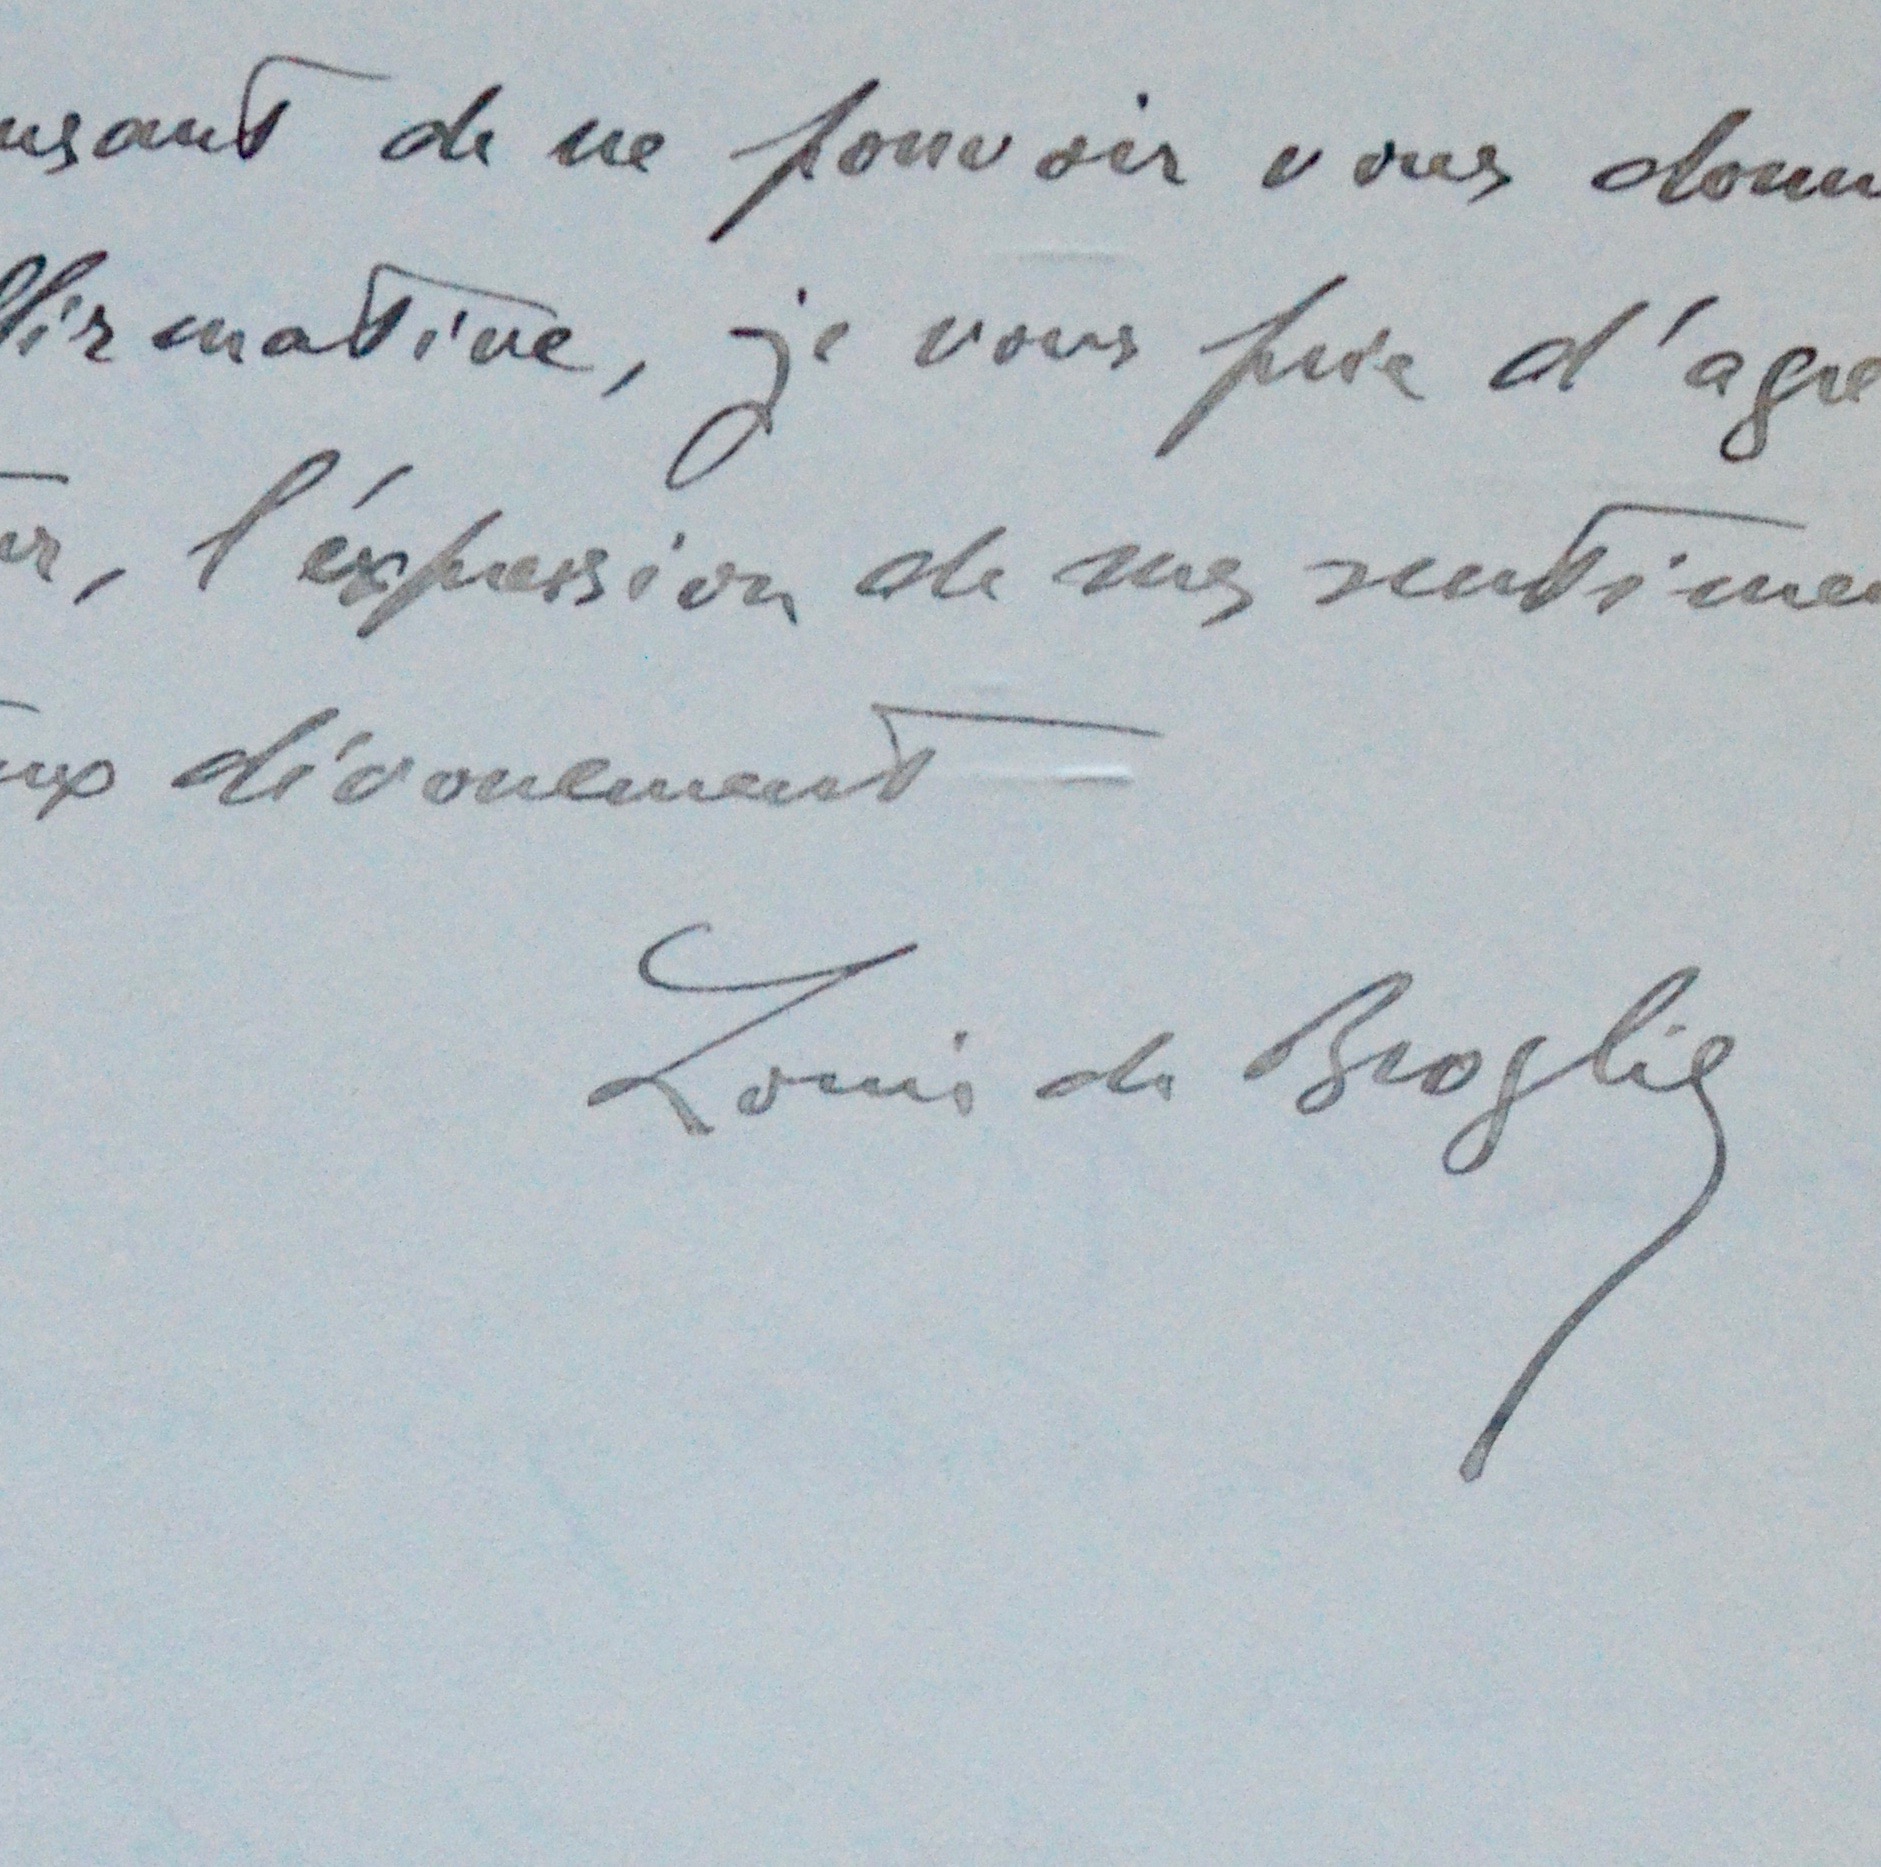 usant de ne pouvoir vous donn
ffirmative, je vous prie d'agré
ur, l'éxpression de mes sentimen
eux dévouement
Louis de Broglie